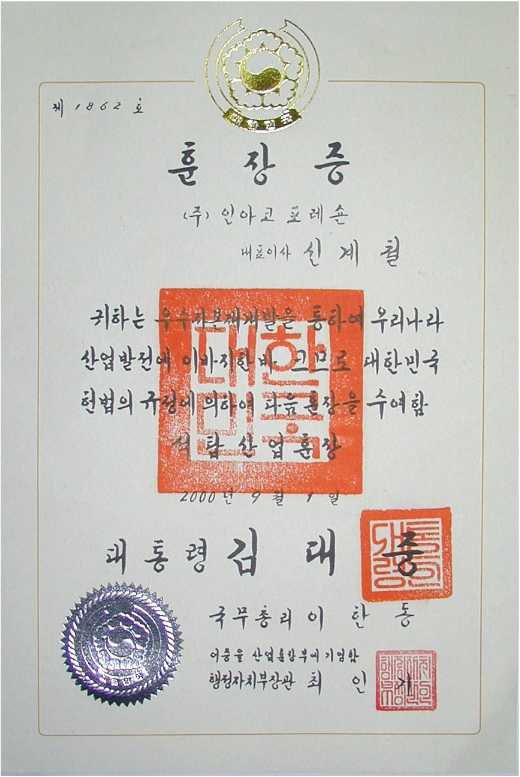 제 1862 호
훈장증
(주) 인아코포레숀
대표이사 신계철
귀하는 우수자본재개발을 통하여 우리나라
산업발전에 이바지한바 크므로 대한민국
헌법의 규정에 의하여 다음 훈장을 수여함
석탑산업훈장
2000년 9월 1일
대통령 김대중
국무총리 이한동
이증을 산업훈장부에 기입함
행정자치부장관 최인기
대한민국